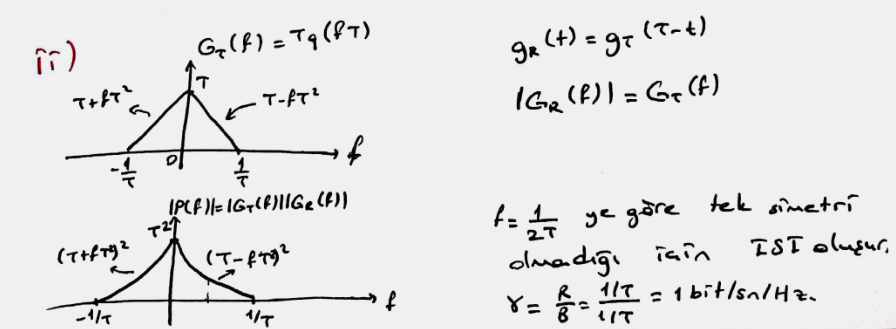 ii)
G_T(f) = Tq(fT)
T
T+fT²
T-fT²
-1/T
0
1/T
f
|P(f)|=|G_T(f)||G_R(f)|
T²
(T+fT²)²
(T-fT²)²
-1/T
1/T
f
g_R(t) = g_T(T-t)
|G_R(f)| = G_T(f)
f = 1/2T ye göre tek simetri
olmadığı için ISI oluşur.
γ = R/B = 1/T / 1/T = 1 bit/sn/Hz.